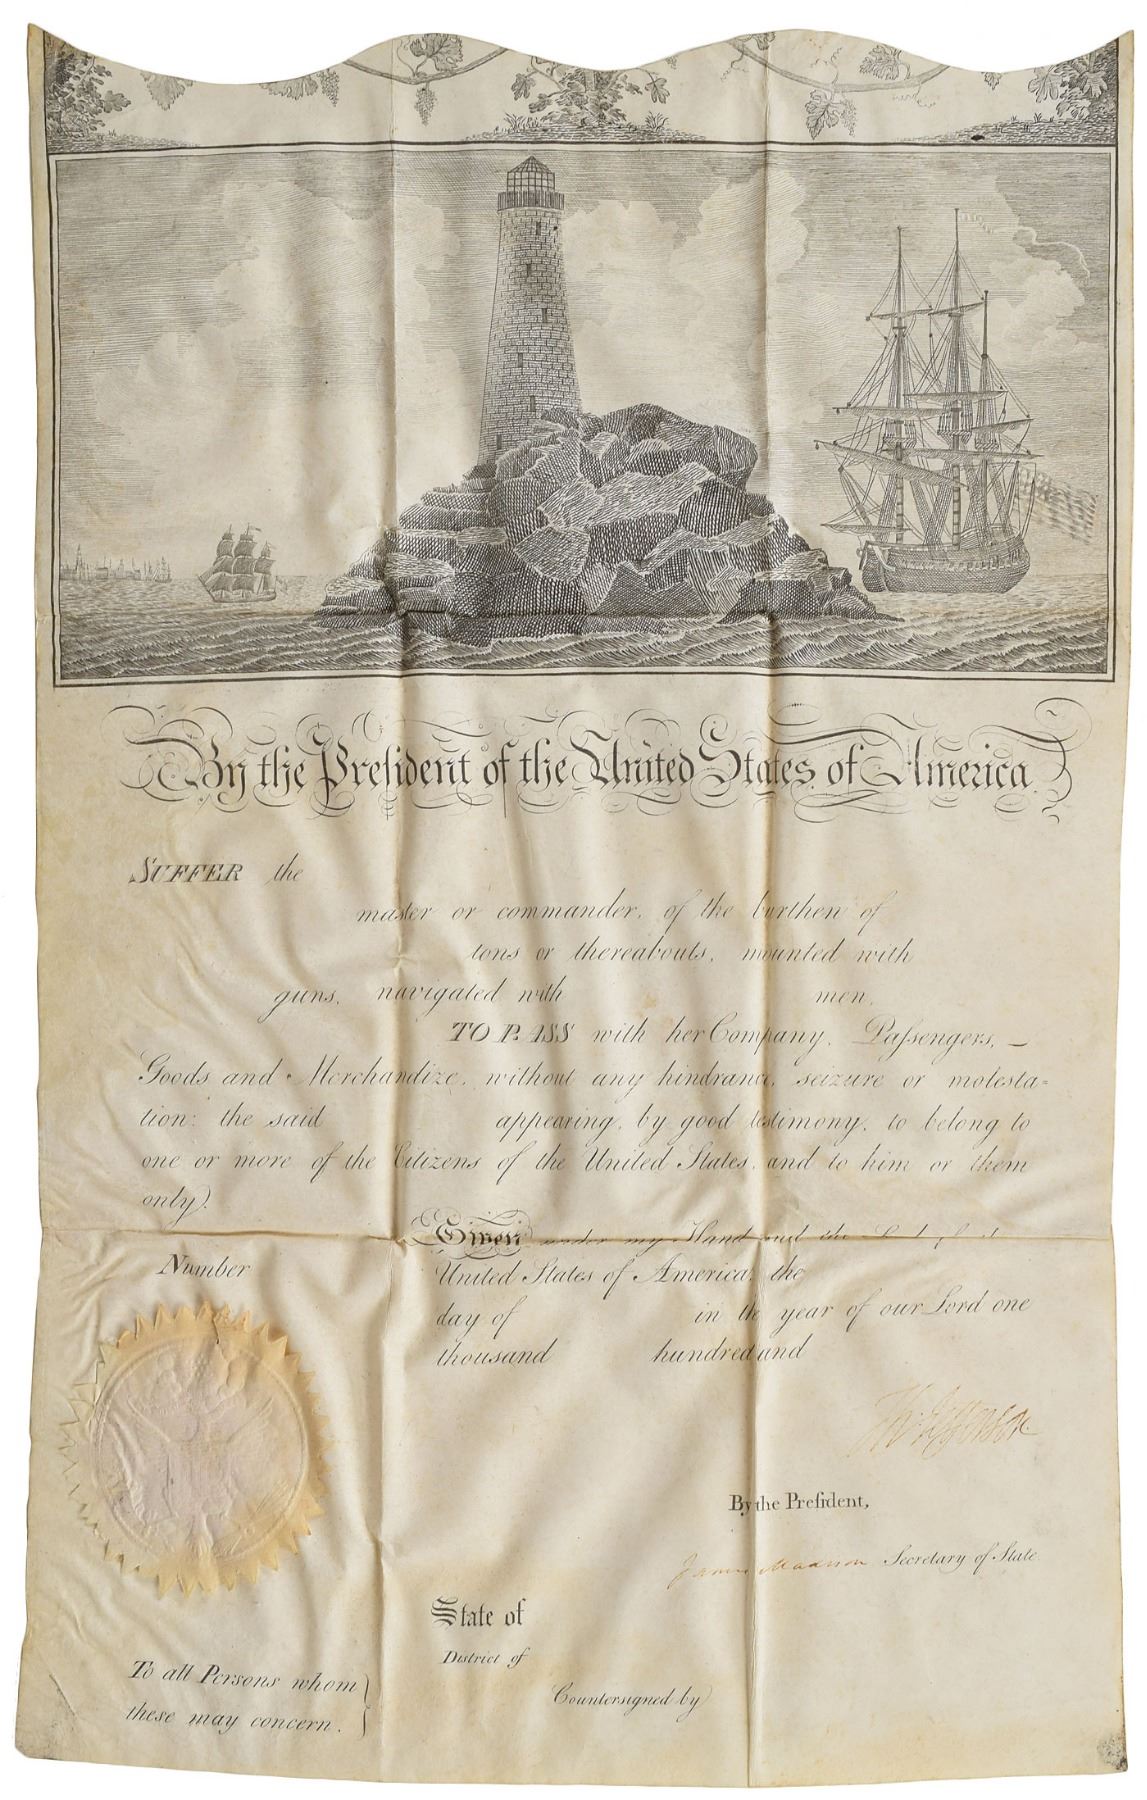 By the Preſident of the United States of America.
SUFFER the
master or commander, of the burthen of
tons or thereabouts, mounted with
guns, navigated with men,
TO PASS with her Company, Paſsengers, —
Goods and Merchandize, without any hindrance, seizure or molesta=
tion: the said appearing, by good testimony, to belong to
one or more of the Citizens of the United States, and to him or them
only).
Given under my Hand and the
Number
United States of America, the
day of in the year of our Lord one
thousand hundred and
Th: Jefferson
By the Preſident,
James Madison Secretary of State.
State of
District of
Countersigned by
To all Persons whom
these may concern.